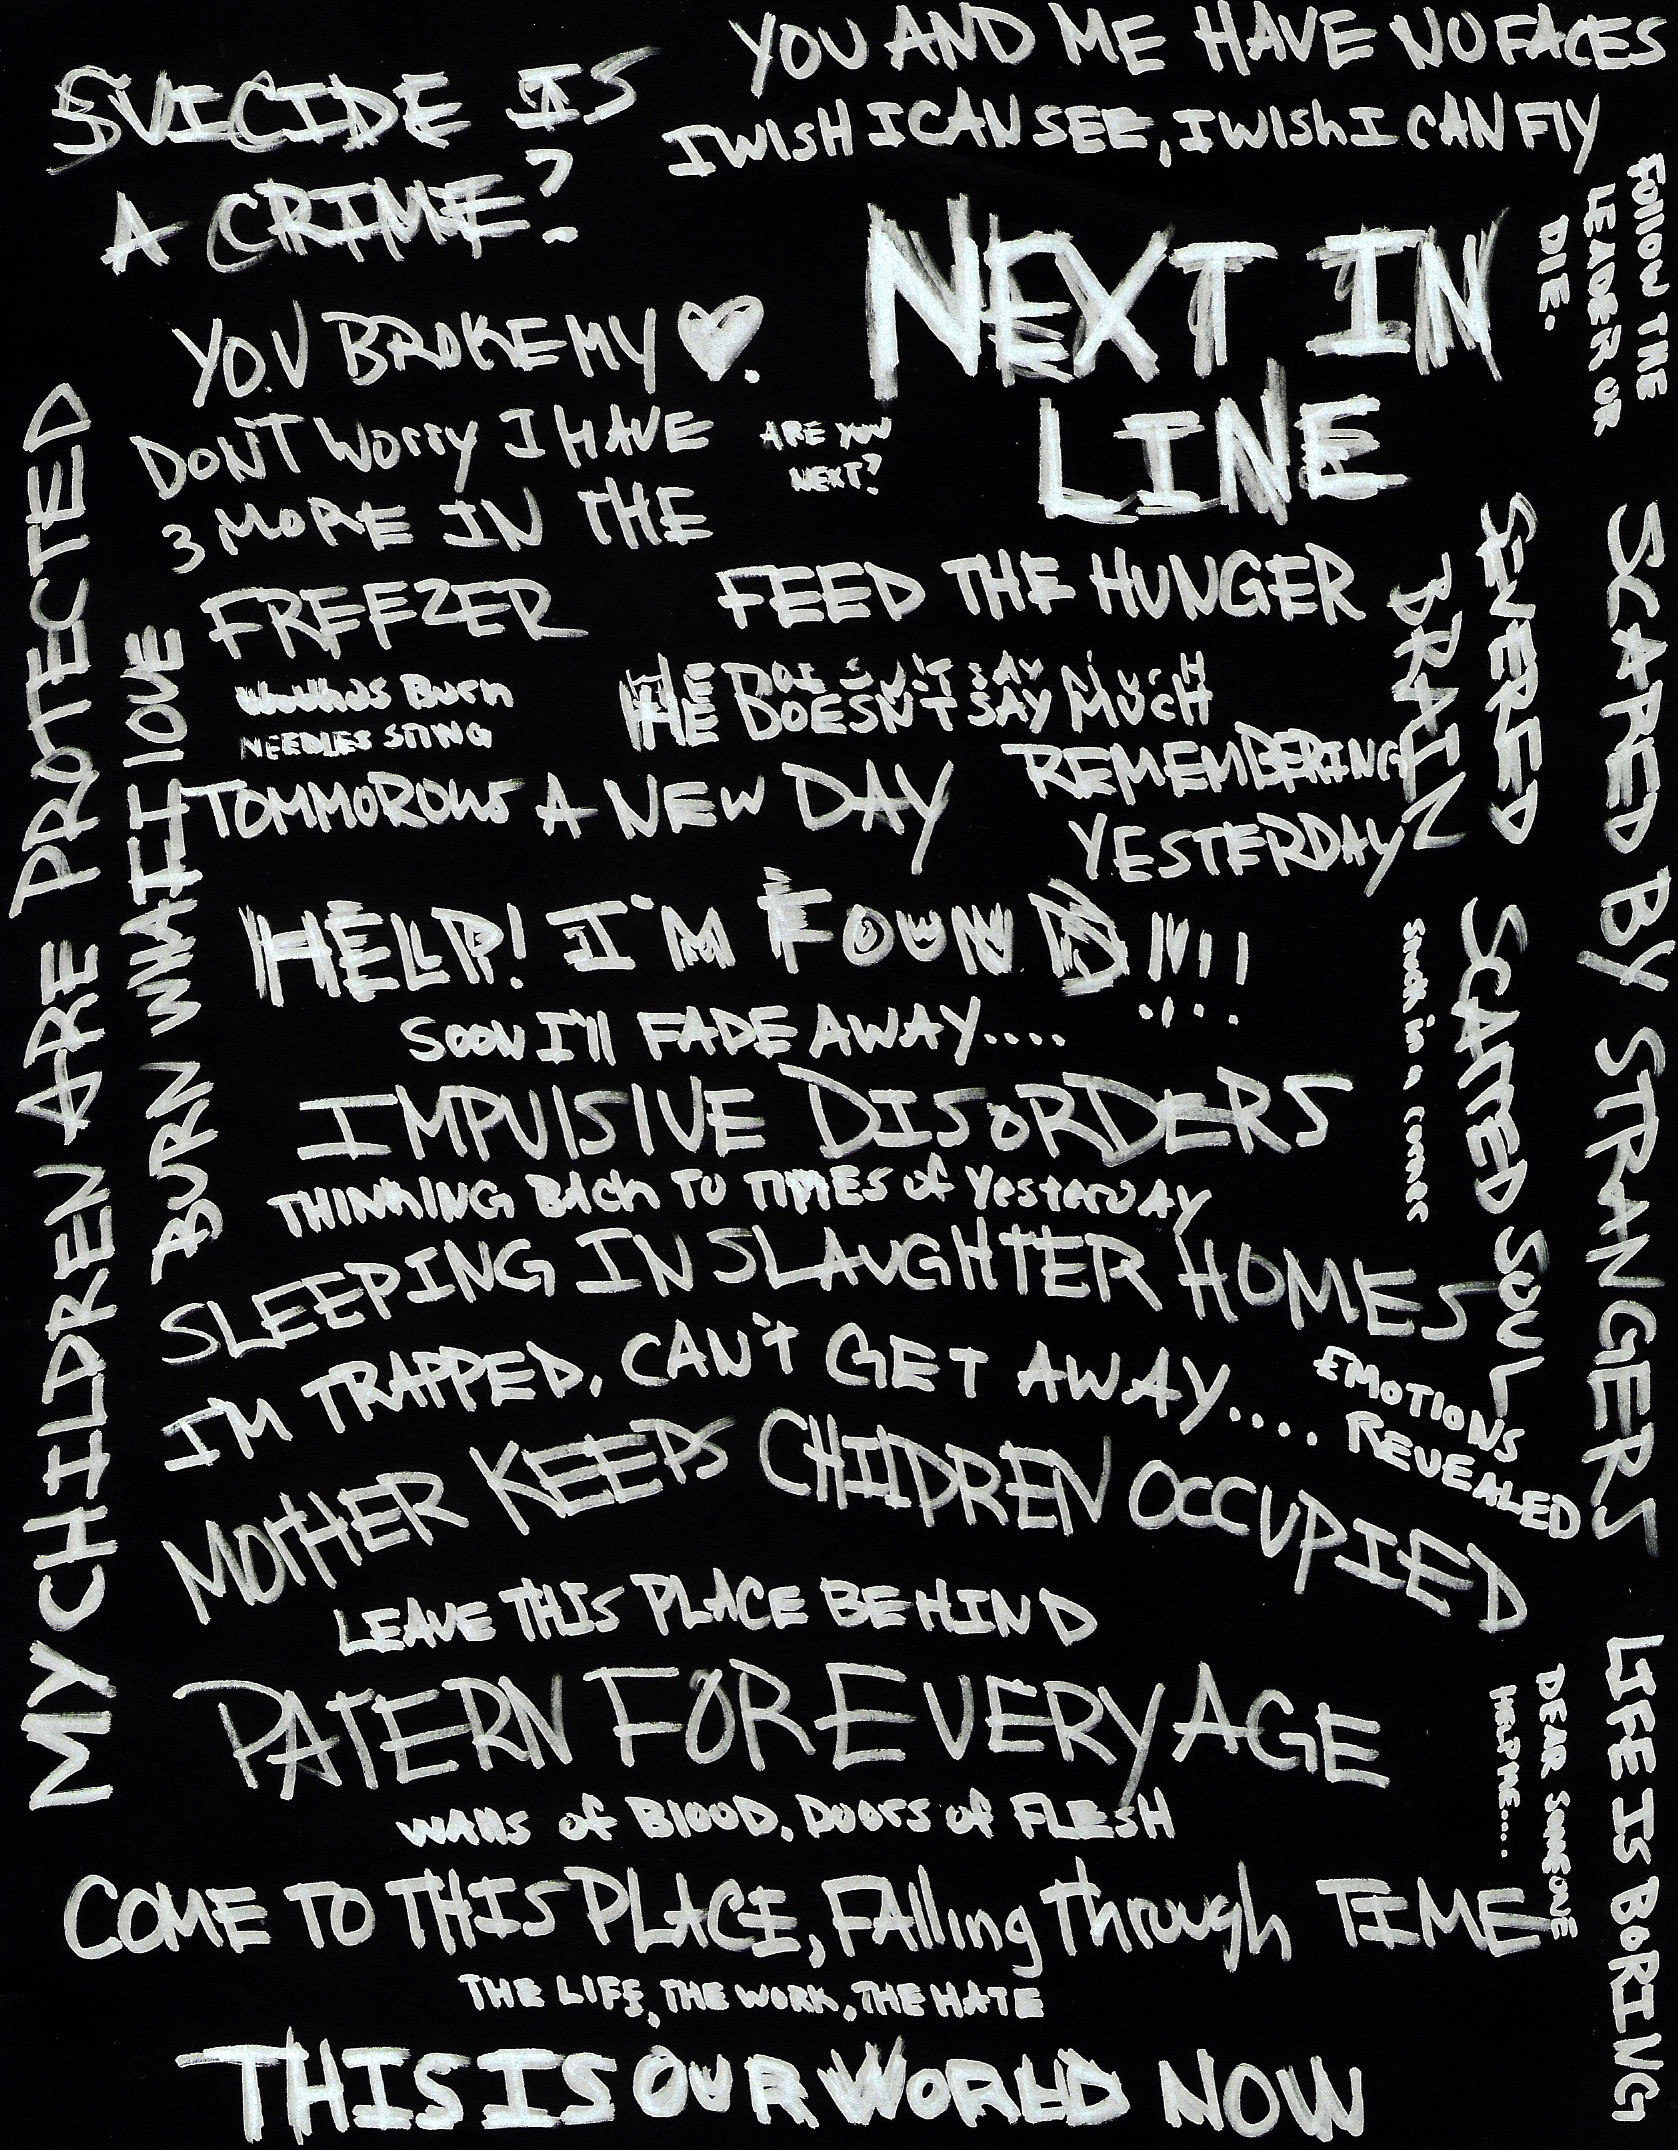 YOU AND ME HAVE NO FACES
I WISH I CAN SEE, I WISh I CAN FlY
SUICIDE IS
A CRIME?
FOllOW THE
LEADER OR
DIE.
NEXT IN
LINE
YOU BROKE MY ♥.
DON'T WOrry I HAVE
3 MORE IN THE
FREEZER
ARE YOU
NEXT?
FEED THE HUNGER
SEVERED
BRAIN
SCARED BY STRANGERS
MY CHILDREN ARE PROTECTED
BURN WHAT I lOVE
Burn
NEEDLES STING
HE DOESN'T SAY MUCH
HE DOESN'T SAY MUcH
TOMMOROWS A NEW DAY
REMEMBERING
YESTERDAY
HELP! I'M FOUND!!!!
SOON I'll FADE AWAY....
Stuck in a corner
SCARRED SOUL
IMPUlSIVE DISORDERS
THINKING BAck TO TIMES of YesterDAY
SLEEPING IN SLAUGHTER HOMES
I'M TRAPPED. CAN't GET AWAY....
EMOTIONS
REVEALED
MOTHER KEEPS CHIlDREN OCCUPIED
LEAVE THIS PLACE BEHIND
PATERN FOR EVERY AGE
WAlls of BlOOD. DOOrS of FLESH
DEAR SOMEONE
HELP ME....
LIFE IS BORING
COME TO THIS PLACE, FAlling through TIME
THE LIFE, THE WORK, THE HATE
THIS IS OUR WORLD NOW